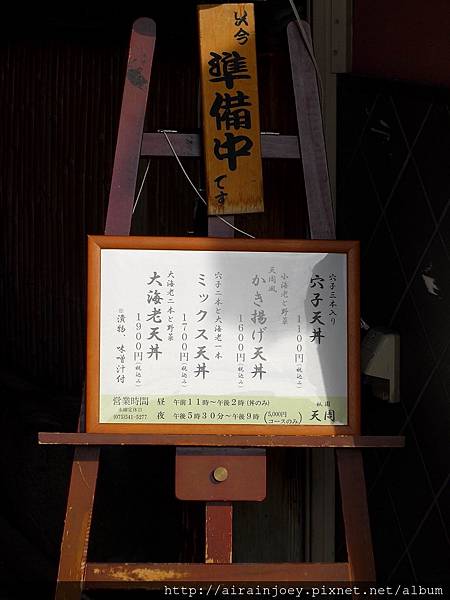 只今
準備中
です
穴子三本入り
穴子天丼
1100円(税込み)
小海老と野菜
天周風
かき揚げ天丼
1600円(税込み)
穴子二本と大海老一本
ミックス天丼
1700円(税込み)
大海老二本と野菜
大海老天丼
1900円(税込み)
※漬物、味噌汁付
営業時間 昼 午前11時~午後2時(丼のみ)
水曜定休日
(075)541-5277 夜 午後5時30分~午後9時(5,000円コースのみ)
祇園
天周
http://airainjoey.pixnet.net/album